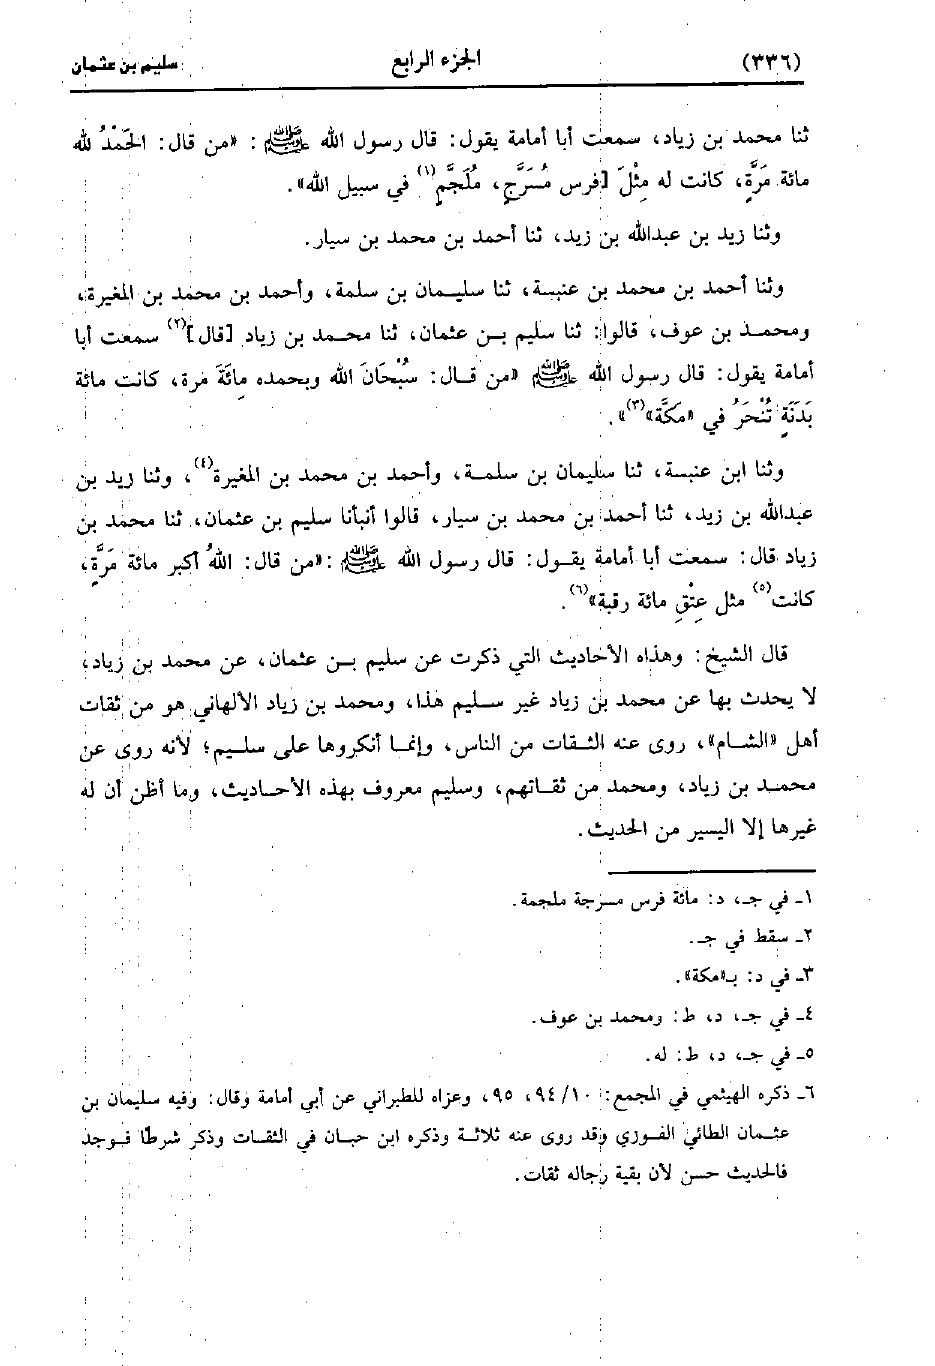 (٣٣٦) الجزء الرابع سليم بن عثمان
ثنا محمد بن زياد، سمعت أبا أمامة يقول: قال رسول الله ﷺ : «من قال: الحَمْدُ لله
مائة مَرَّةٍ، كانت له مِثْلَ [فرس مُسَرَّجٍ، مُلَجَّمٍ(١) في سبيل الله».
وثنا زيد بن عبدالله بن زيد، ثنا أحمد بن محمد بن سيار.
وثنا أحمد بن محمد بن عنبسة، ثنا سليمان بن سلمة، وأحمد بن محمد بن المغيرة،
ومحمد بن عوف، قالوا: ثنا سليم بن عثمان، ثنا محمد بن زياد [قال](٢) سمعت أبا
أمامة يقول: قال رسول الله ﷺ «من قال: سُبْحَانَ الله وبحمده مائَةَ مَرة، كانت مائة
بَدَنَةٍ تُنْحَرُ في «مَكَّةَ»(٣)».
وثنا ابن عنبسة، ثنا سليمان بن سلمة، وأحمد بن محمد بن المغيرة(٤)، وثنا زيد بن
عبدالله بن زيد، ثنا أحمد بن محمد بن سيار، قالوا أنبأنا سليم بن عثمان، ثنا محمد بن
زياد قال: سمعت أبا أمامة يقول: قال رسول الله ﷺ: «من قال: اللهُ أكبر مائة مَرَّةٍ،
كانت(٥) مثل عِتْقِ مائة رقبة»(٦).
قال الشيخ: وهذه الأحاديث التي ذكرت عن سليم بن عثمان، عن محمد بن زياد،
لا يحدث بها عن محمد بن زياد غير سليم هذا، ومحمد بن زياد الألهاني هو من ثقات
أهل «الشام»، روى عنه الثقات من الناس، وإنما أنكروها على سليم؛ لأنه روى عن
محمد بن زياد، ومحمد من ثقاتهم، وسليم معروف بهذه الأحاديث، وما أظن أن له
غيرها إلا اليسير من الحديث.
١ـ في جـ، د: مائة فرس مسرجة ملجمة.
٢ـ سقط في جـ.
٣ـ في د: بـ«مكة».
٤ـ في جـ، د، ط: ومحمد بن عوف.
٥ـ في جـ، د، ط: له.
٦ـ ذكره الهيثمي في المجمع: ١٠/ ٩٤، ٩٥، وعزاه للطبراني عن أبي أمامة وقال: وفيه سليمان بن
عثمان الطائي الفوزي وقد روى عنه ثلاثة وذكره ابن حبان في الثقات وذكر شرطًا فوجد
فالحديث حسن لأن بقية رجاله ثقات.